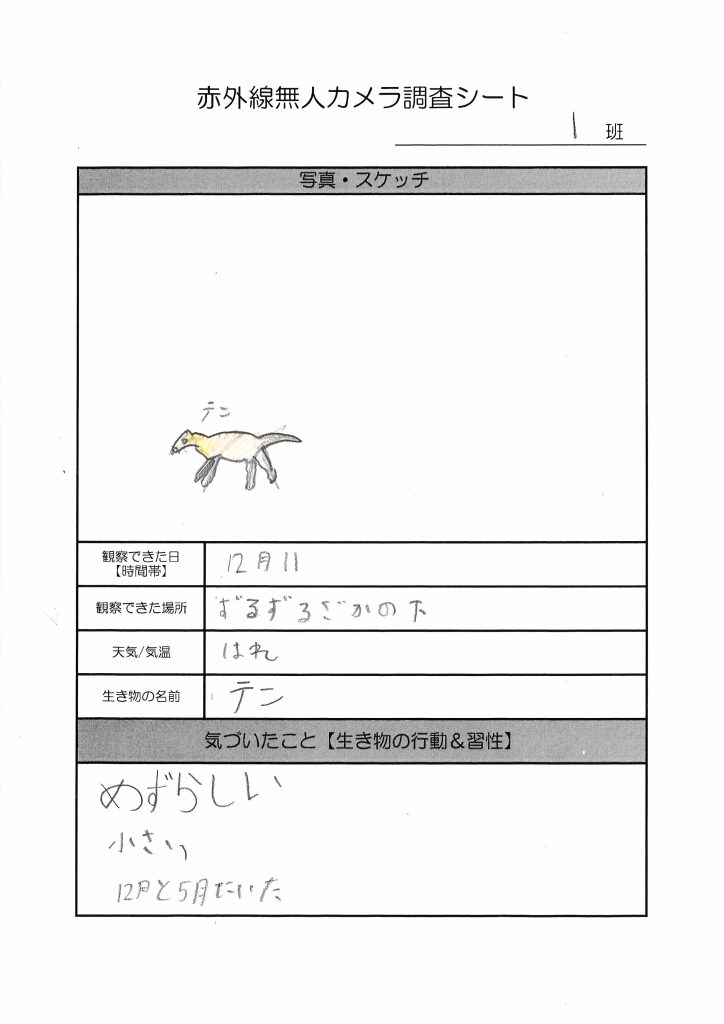 赤外線無人カメラ調査シート
1 班
写真・スケッチ
テン
観察できた日
【時間帯】
12月11
観察できた場所
ずるずるざかの下
天気/気温
はれ
生き物の名前
テン
気づいたこと【生き物の行動＆習性】
めずらしい
小さい
12月と5月にいた